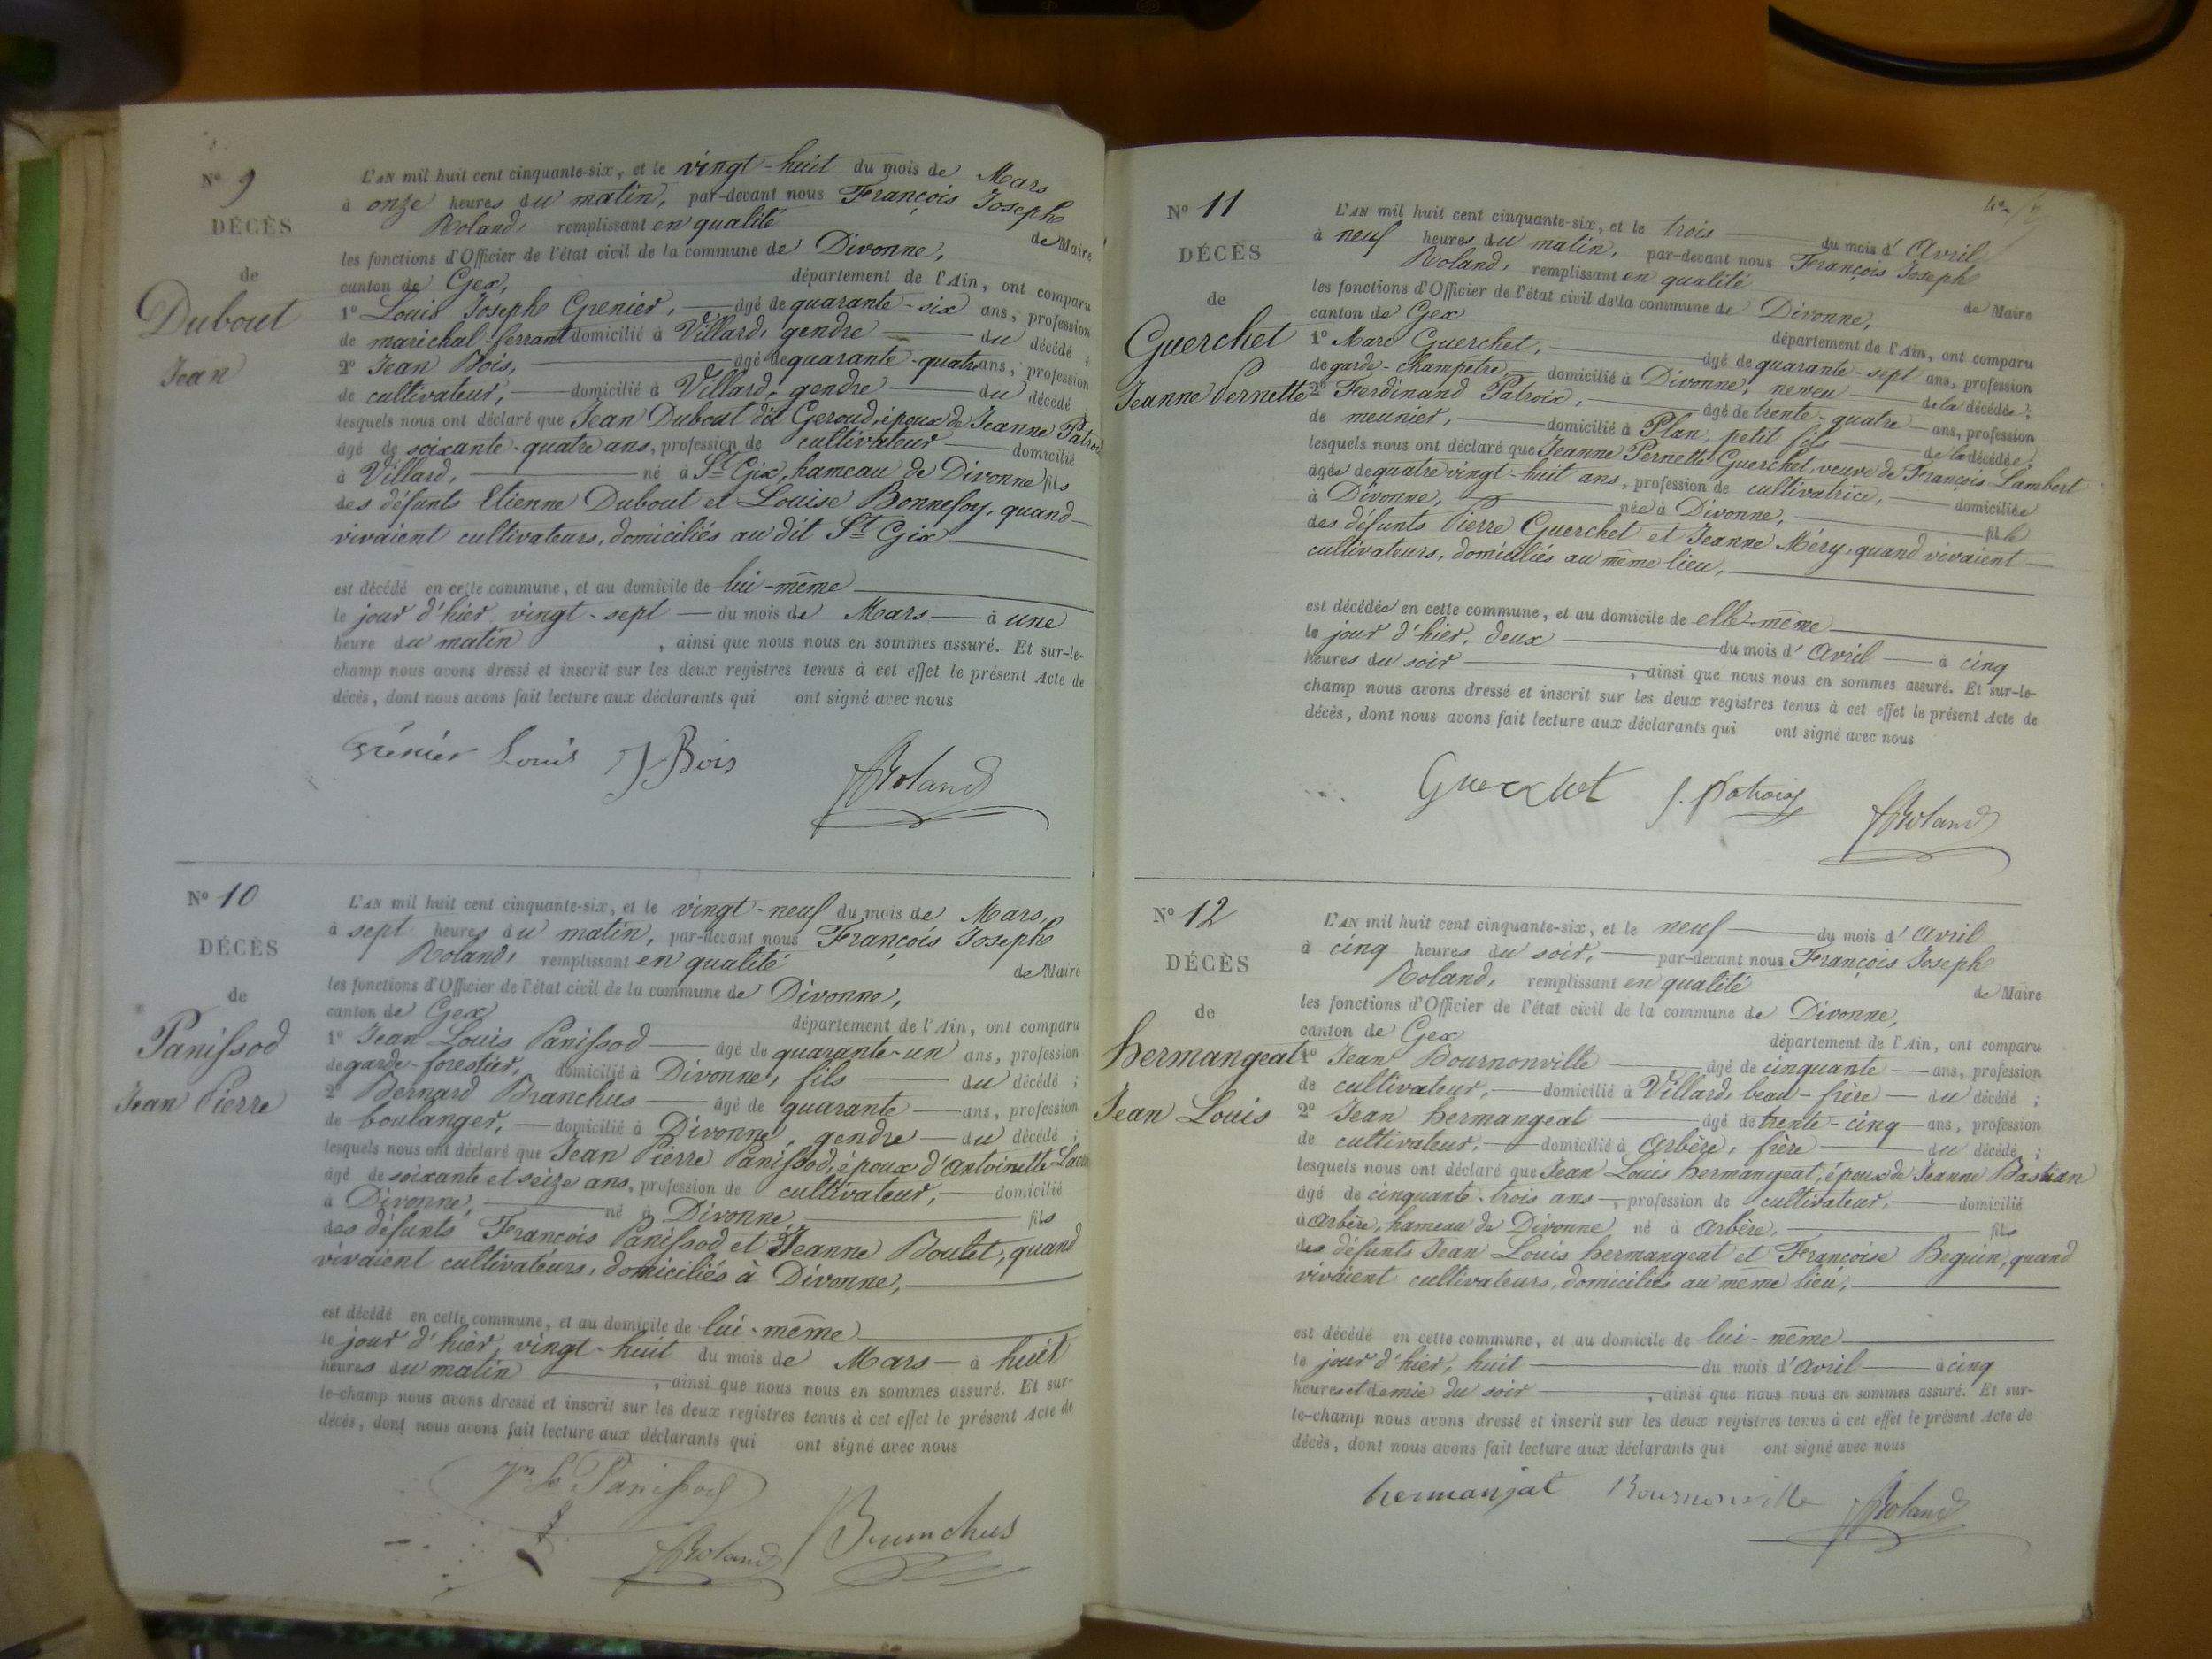 N° 9
DÉCÈS
de
Dubout
Jean
L'AN mil huit cent cinquante-six, et le vingt-huit du mois de Mars
à onze heures du matin, par-devant nous François Joseph
Roland, remplissant en qualité de Maire
les fonctions d'Officier de l'état civil de la commune de Divonne,
canton de Gex, département de l'Ain, ont comparu
1° Louis Joseph Grenier, âgé de quarante-six ans, profession
de maréchal-ferrant domicilié à Villard, gendre du décédé ;
2° Jean Bois, âgé de quarante-quatre ans, profession
de cultivateur, domicilié à Villard, gendre du décédé
lesquels nous ont déclaré que Jean Dubout dit Geroud, époux de Jeanne
âgé de soixante-quatre ans, profession de cultivateur domicilié
à Villard, né à St Gix, hameau de Divonne fils
des défunts Etienne Dubout et Louise Bonnefoy, quand
vivaient cultivateurs, domiciliés au dit St Gix
est décédé en cette commune, et au domicile de lui-même
le jour d'hier vingt-sept du mois de Mars à une
heure du matin, ainsi que nous nous en sommes assuré. Et sur-le-
champ nous avons dressé et inscrit sur les deux registres tenus à cet effet le présent Acte de
décès, dont nous avons fait lecture aux déclarants qui ont signé avec nous
Grénier Louis J Bois Roland
N° 10
DÉCÈS
de
Panissod
Jean Pierre
L'AN mil huit cent cinquante-six, et le vingt-neuf du mois de Mars,
à sept heures du matin, par-devant nous François Joseph
Roland, remplissant en qualité de Maire
les fonctions d'Officier de l'état civil de la commune de Divonne,
canton de Gex département de l'Ain, ont comparu
1° Jean Louis Panissod âgé de quarante-un ans, profession
de garde-forestier, domicilié à Divonne, fils du décédé ;
2° Bernard Branchus âgé de quarante ans, profession
de boulanger, domicilié à Divonne, gendre du décédé ;
lesquels nous ont déclaré que Jean Pierre Panissod, époux d'Antoinette
âgé de soixante et seize ans, profession de cultivateur, domicilié
à Divonne, né à Divonne fils
des défunts François Panissod et Jeanne Boulet, quand
vivaient cultivateurs, domiciliés à Divonne,
est décédé en cette commune, et au domicile de lui-même
le jour d'hier, vingt-huit du mois de Mars à huit
heures du matin, ainsi que nous nous en sommes assuré. Et sur-
le-champ nous avons dressé et inscrit sur les deux registres tenus à cet effet le présent Acte de
décès, dont nous avons fait lecture aux déclarants qui ont signé avec nous
Panissod
Roland Branchus
N° 11
DÉCÈS
de
Guerchet
Jeanne Pernette
L'AN mil huit cent cinquante-six, et le trois du mois d'Avril
à neuf heures du matin, par-devant nous François Joseph
Roland, remplissant en qualité de Maire
les fonctions d'Officier de l'état civil de la commune de Divonne,
canton de Gex département de l'Ain, ont comparu
1° Marc Guerchet, âgé de quarante-sept ans, profession
de garde-champêtre, domicilié à Divonne, neveu de la décédée ;
2° Ferdinand Patroix, âgé de trente-quatre ans, profession
de meunier, domicilié à Plan, petit fils de la décédée ;
lesquels nous ont déclaré que Jeanne Pernette Guerchet, veuve de François Lambert
âgée de quatre vingt-huit ans, profession de cultivatrice, domiciliée
à Divonne, née à Divonne, fille
des défunts Pierre Guerchet et Jeanne Méry, quand vivaient
cultivateurs, domiciliés au même lieu,
est décédée en cette commune, et au domicile de elle-même
le jour d'hier, deux du mois d'Avril à cinq
heures du soir, ainsi que nous nous en sommes assuré. Et sur-le-
champ nous avons dressé et inscrit sur les deux registres tenus à cet effet le présent Acte de
décès, dont nous avons fait lecture aux déclarants qui ont signé avec nous
Guerchet f. Patroix Roland
N° 12
DÉCÈS
de
hermangeat
Jean Louis
L'AN mil huit cent cinquante-six, et le neuf du mois d'Avril
à cinq heures du soir, par-devant nous François Joseph
Roland, remplissant en qualité de Maire
les fonctions d'Officier de l'état civil de la commune de Divonne,
canton de Gex département de l'Ain, ont comparu
1° Jean Bournonville âgé de cinquante ans, profession
de cultivateur, domicilié à Villard, beau-frère du décédé ;
2° Jean hermangeat âgé de trente-cinq ans, profession
de cultivateur, domicilié à Arbère, frère du décédé ;
lesquels nous ont déclaré que Jean Louis hermangeat, époux de Jeanne Bastian
âgé de cinquante-trois ans, profession de cultivateur, domicilié
à Arbère, hameau de Divonne né à Arbère, fils
des défunts Jean Louis hermangeat et Françoise Beguin, quand
vivaient cultivateurs, domiciliés au même lieu,
est décédé en cette commune, et au domicile de lui-même
le jour d'hier, huit du mois d'Avril à cinq
heures et demie du soir, ainsi que nous nous en sommes assuré. Et sur-
le-champ nous avons dressé et inscrit sur les deux registres tenus à cet effet le présent Acte de
décès, dont nous avons fait lecture aux déclarants qui ont signé avec nous
hermanjat Bournonville Roland